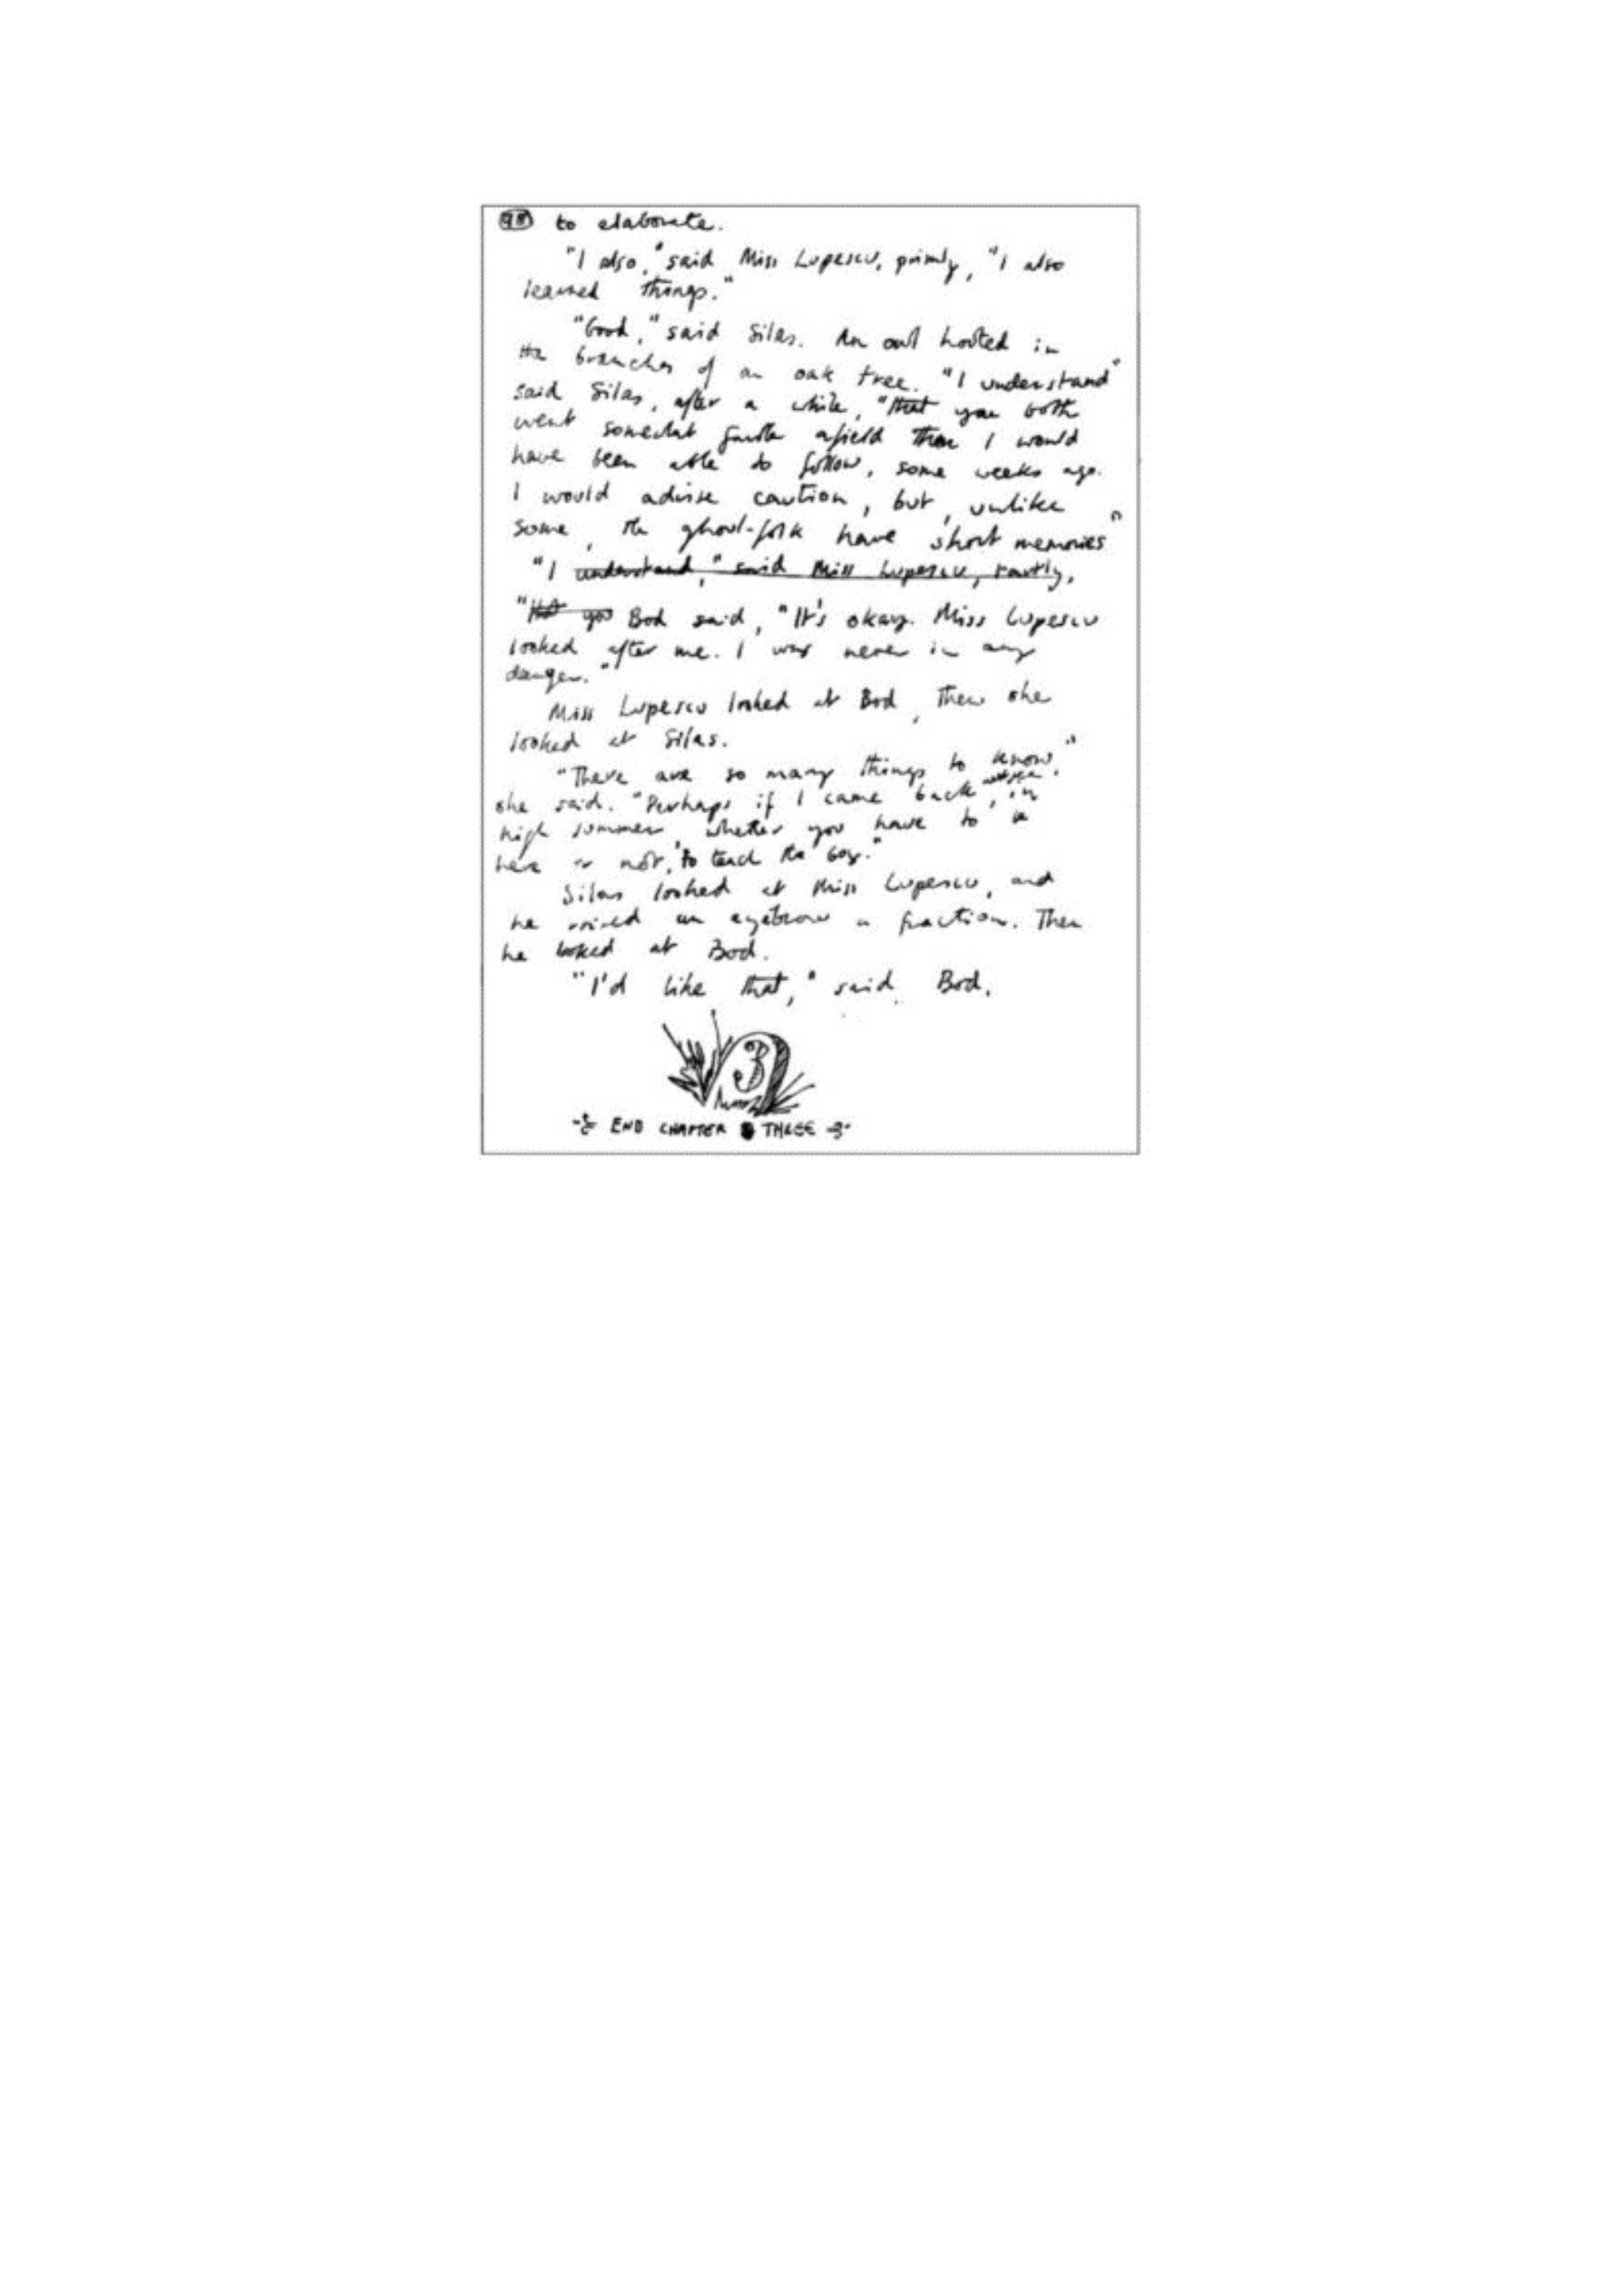 98 to elaborate.
"I also," said Miss Lupescu, primly, "I also
learned things."
"Good," said Silas. An owl hooted in
the branches of an oak tree. "I understand"
said Silas, after a while, "that you both
went somewhat further afield than I would
have been able to follow, some weeks ago.
I would advise caution, but, unlike
some, the ghoul-folk have short memories"
"I understand," said Miss Lupescu, tartly,
"that you Bod said, "It's okay. Miss Lupescu
looked after me. I was never in any
danger."
Miss Lupescu looked at Bod, then she
looked at Silas.
"There are so many things to know,"
she said. "Perhaps if I came back, in
high summer, whether you have to be
here or not, to teach the boy."
Silas looked at Miss Lupescu, and
he raised an eyebrow a fraction. Then
he looked at Bod.
"I'd like that," said Bod.
3
END CHAPTER THREE